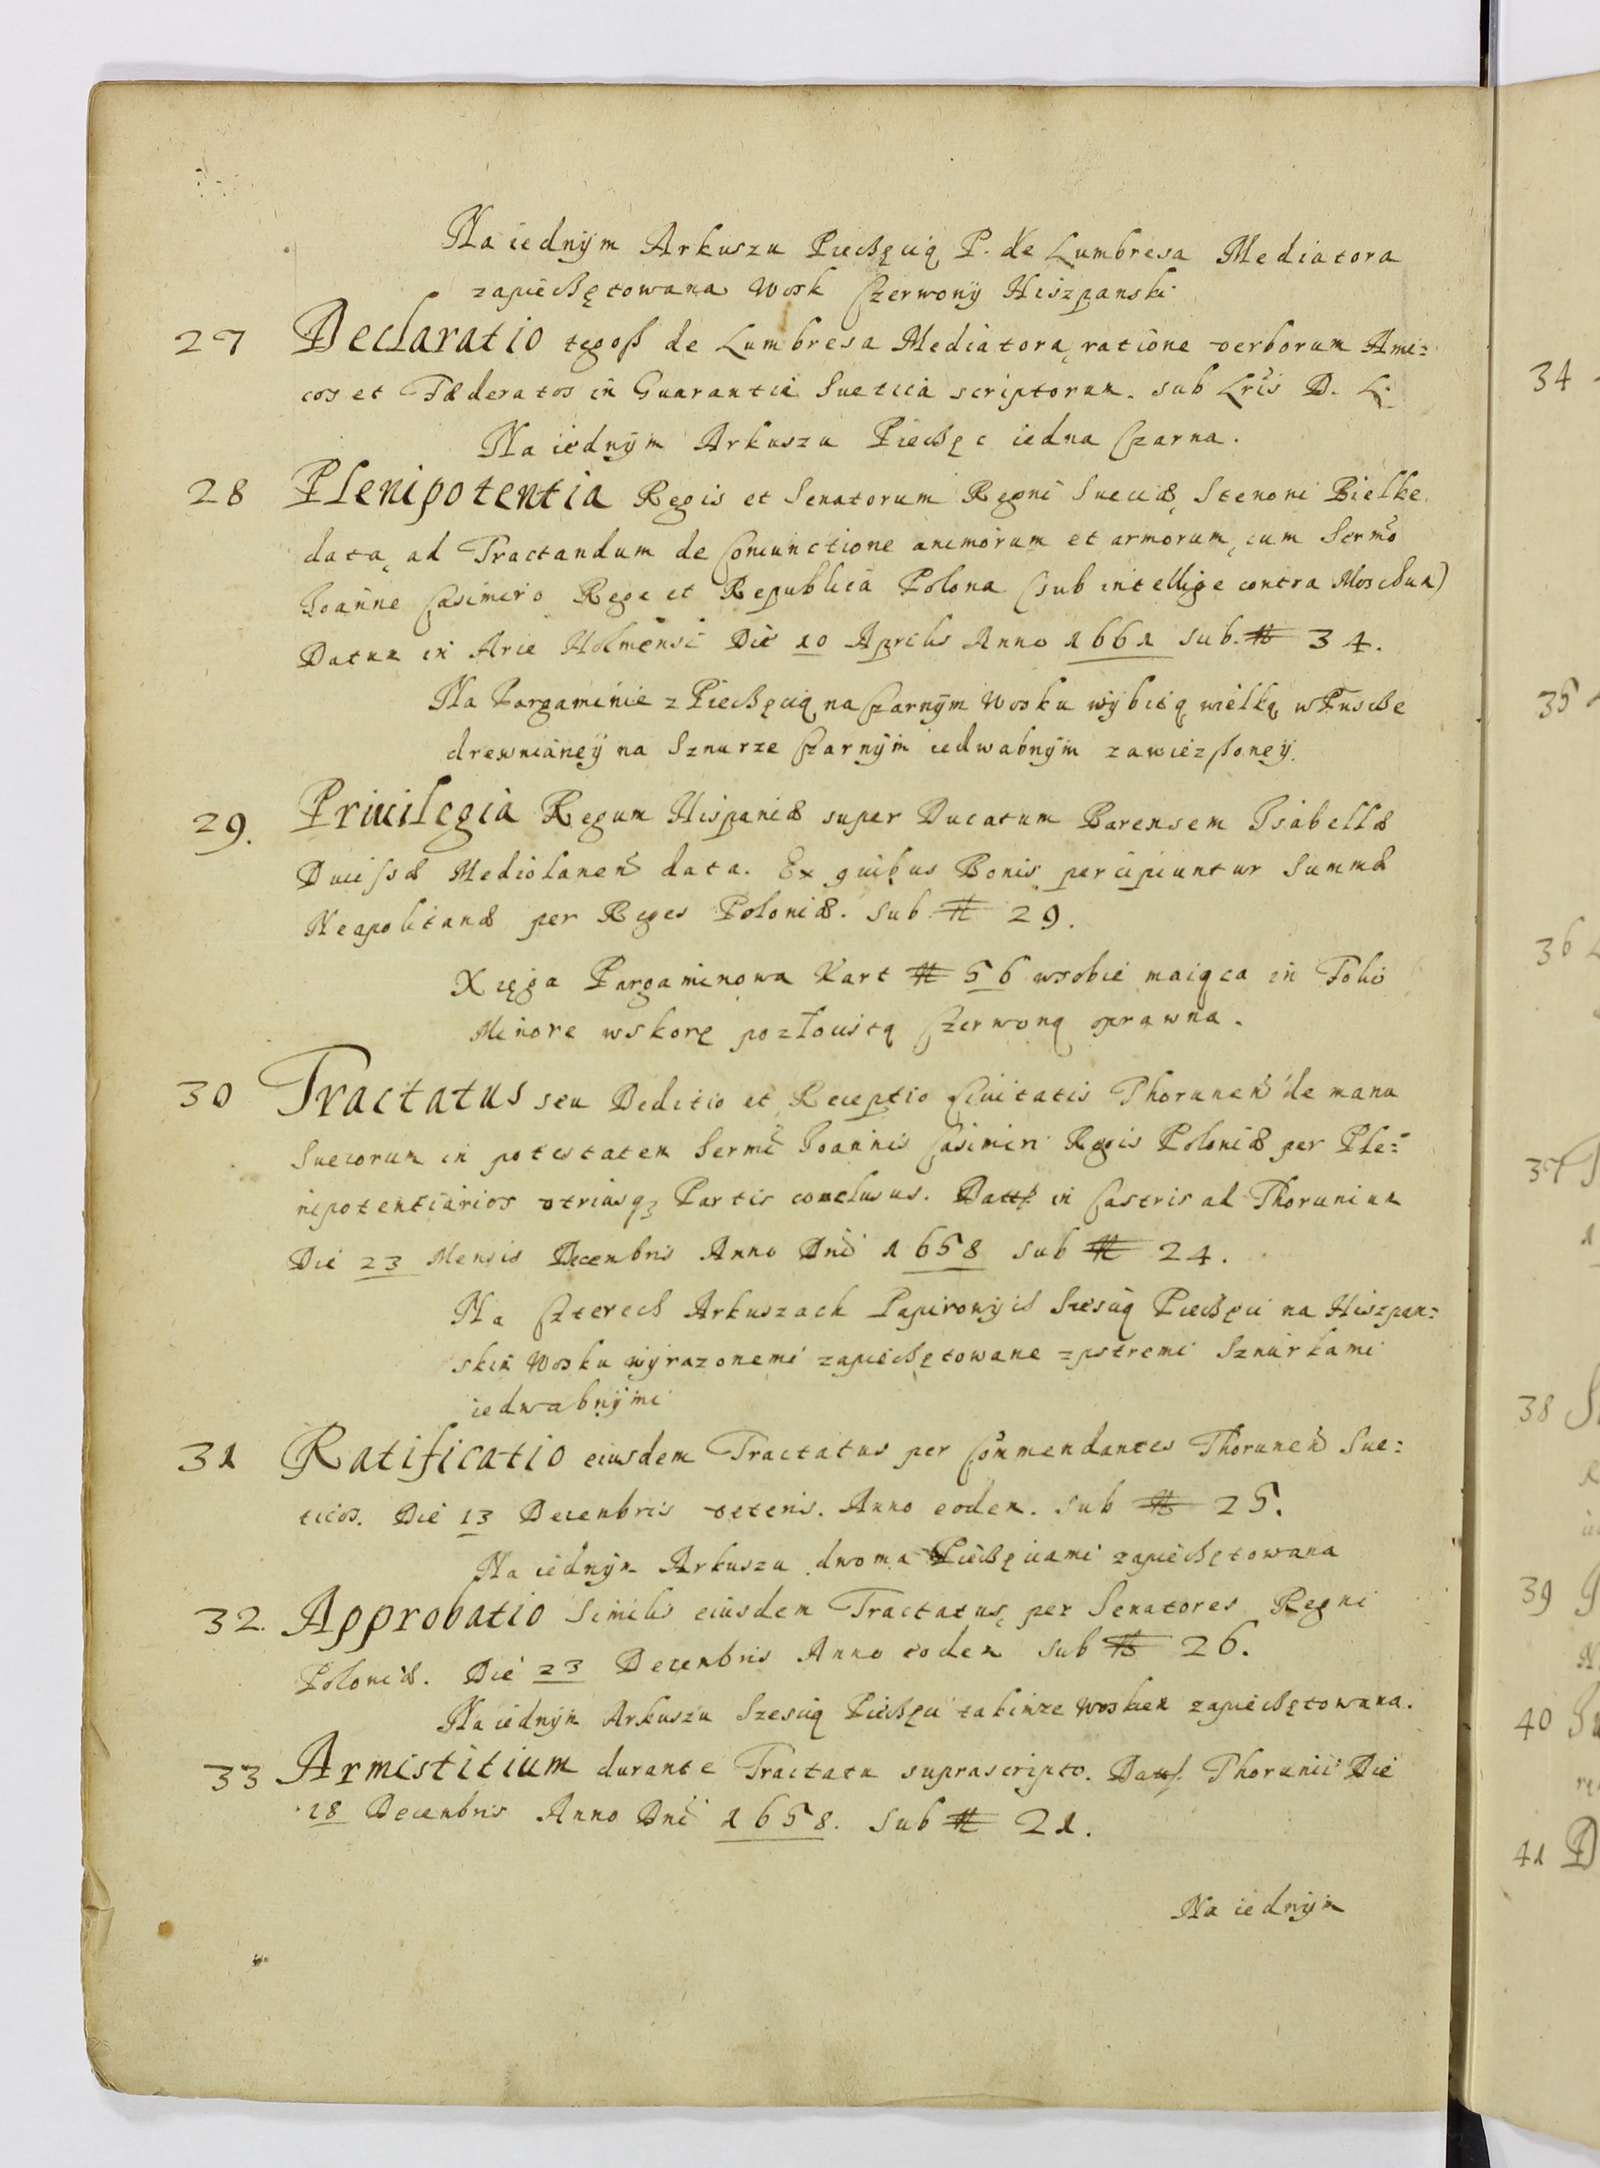 Na iednÿm Arkuszu Pieczęcią P. de Lumbresa Mediatora
zapieczętowana Wosk Czerwonÿ Hiszpanski
27 Declaratio tegosz de Lumbresa Mediatora, ratione verborum Ami=
cos et Fæderatos in Guarantia Suetica scriptorum. sub Lris D. L.
Na iednÿm Arkuszu Pieczęc iedna Czarna.
28 Plenipotentia Regis et Senatorum Regni Sueciæ, Stenoni Bielke
data, ad Tractandum de Coniunctione animorum et armorum, cum Sermo
Joanne Casimiro Rege et Republica Polona (sub intellige contra Moschum)
Datum in Arce Holmensi Die 10 Aprilis Anno 1661 sub. N 34.
Na Pargaminie z Pieczęcią na Czarnÿm Wosku wÿbitą wielką w Puszce
drewnianeÿ na Sznurze Czarnÿm iedwabnÿm zawieszoneÿ.
29. Priuilegia Regum Hispaniæ super Ducatum Barensem Isabellæ
Ducissæ Mediolanen data. Ex quibus Bonis percipiuntur Summæ
Neapolitanæ per Reges Poloniæ. sub N 29.
Xięga Pargaminowa Kart N 56 wsobie maiąca in Folio
Minore wskorę pozłocistą Czerwoną oprawna.
30 Tractatus seu Deditio et Receptio Ciuitatis Thorunen de manu
Suecorum in potestatem Sermi Joannis Casimiri Regis Poloniæ per Ple=
nipotentiarios vtriusq3 Partis conclusus. Datt in Castris ad Thorunium
Die 23 Mensis Decembris Anno Dni 1658 sub N 24.
Na Czterech Arkuszach Papirowÿch Szescią Pieczęci na Hiszpan=
skim Wosku wÿrazonemi zapieczętowane zpstremi Sznurkami
iedwabnÿmi
31 Ratificatio eiusdem Tractatus per Commendantes Thorunen Sue=
ticos. Die 13 Decembris veteris. Anno eodem. sub N 25.
Na iednÿm Arkuszu dwoma Pieczęciami zapieczętowana
32. Approbatio Similis eiusdem Tractatus, per Senatores Regni
Poloniæ. Die 23 Decembris Anno eodem sub N 26.
Na iednÿm Arkuszu Szescią Pieczęci takimze woskiem zapieczętowana.
33 Armistitium durante Tractatu suprascripto. Datt Thorunii Die
18 Decembris Anno Dni 1658. sub N 21.
Na iednÿm
34
35
36
37
38
39
40
41